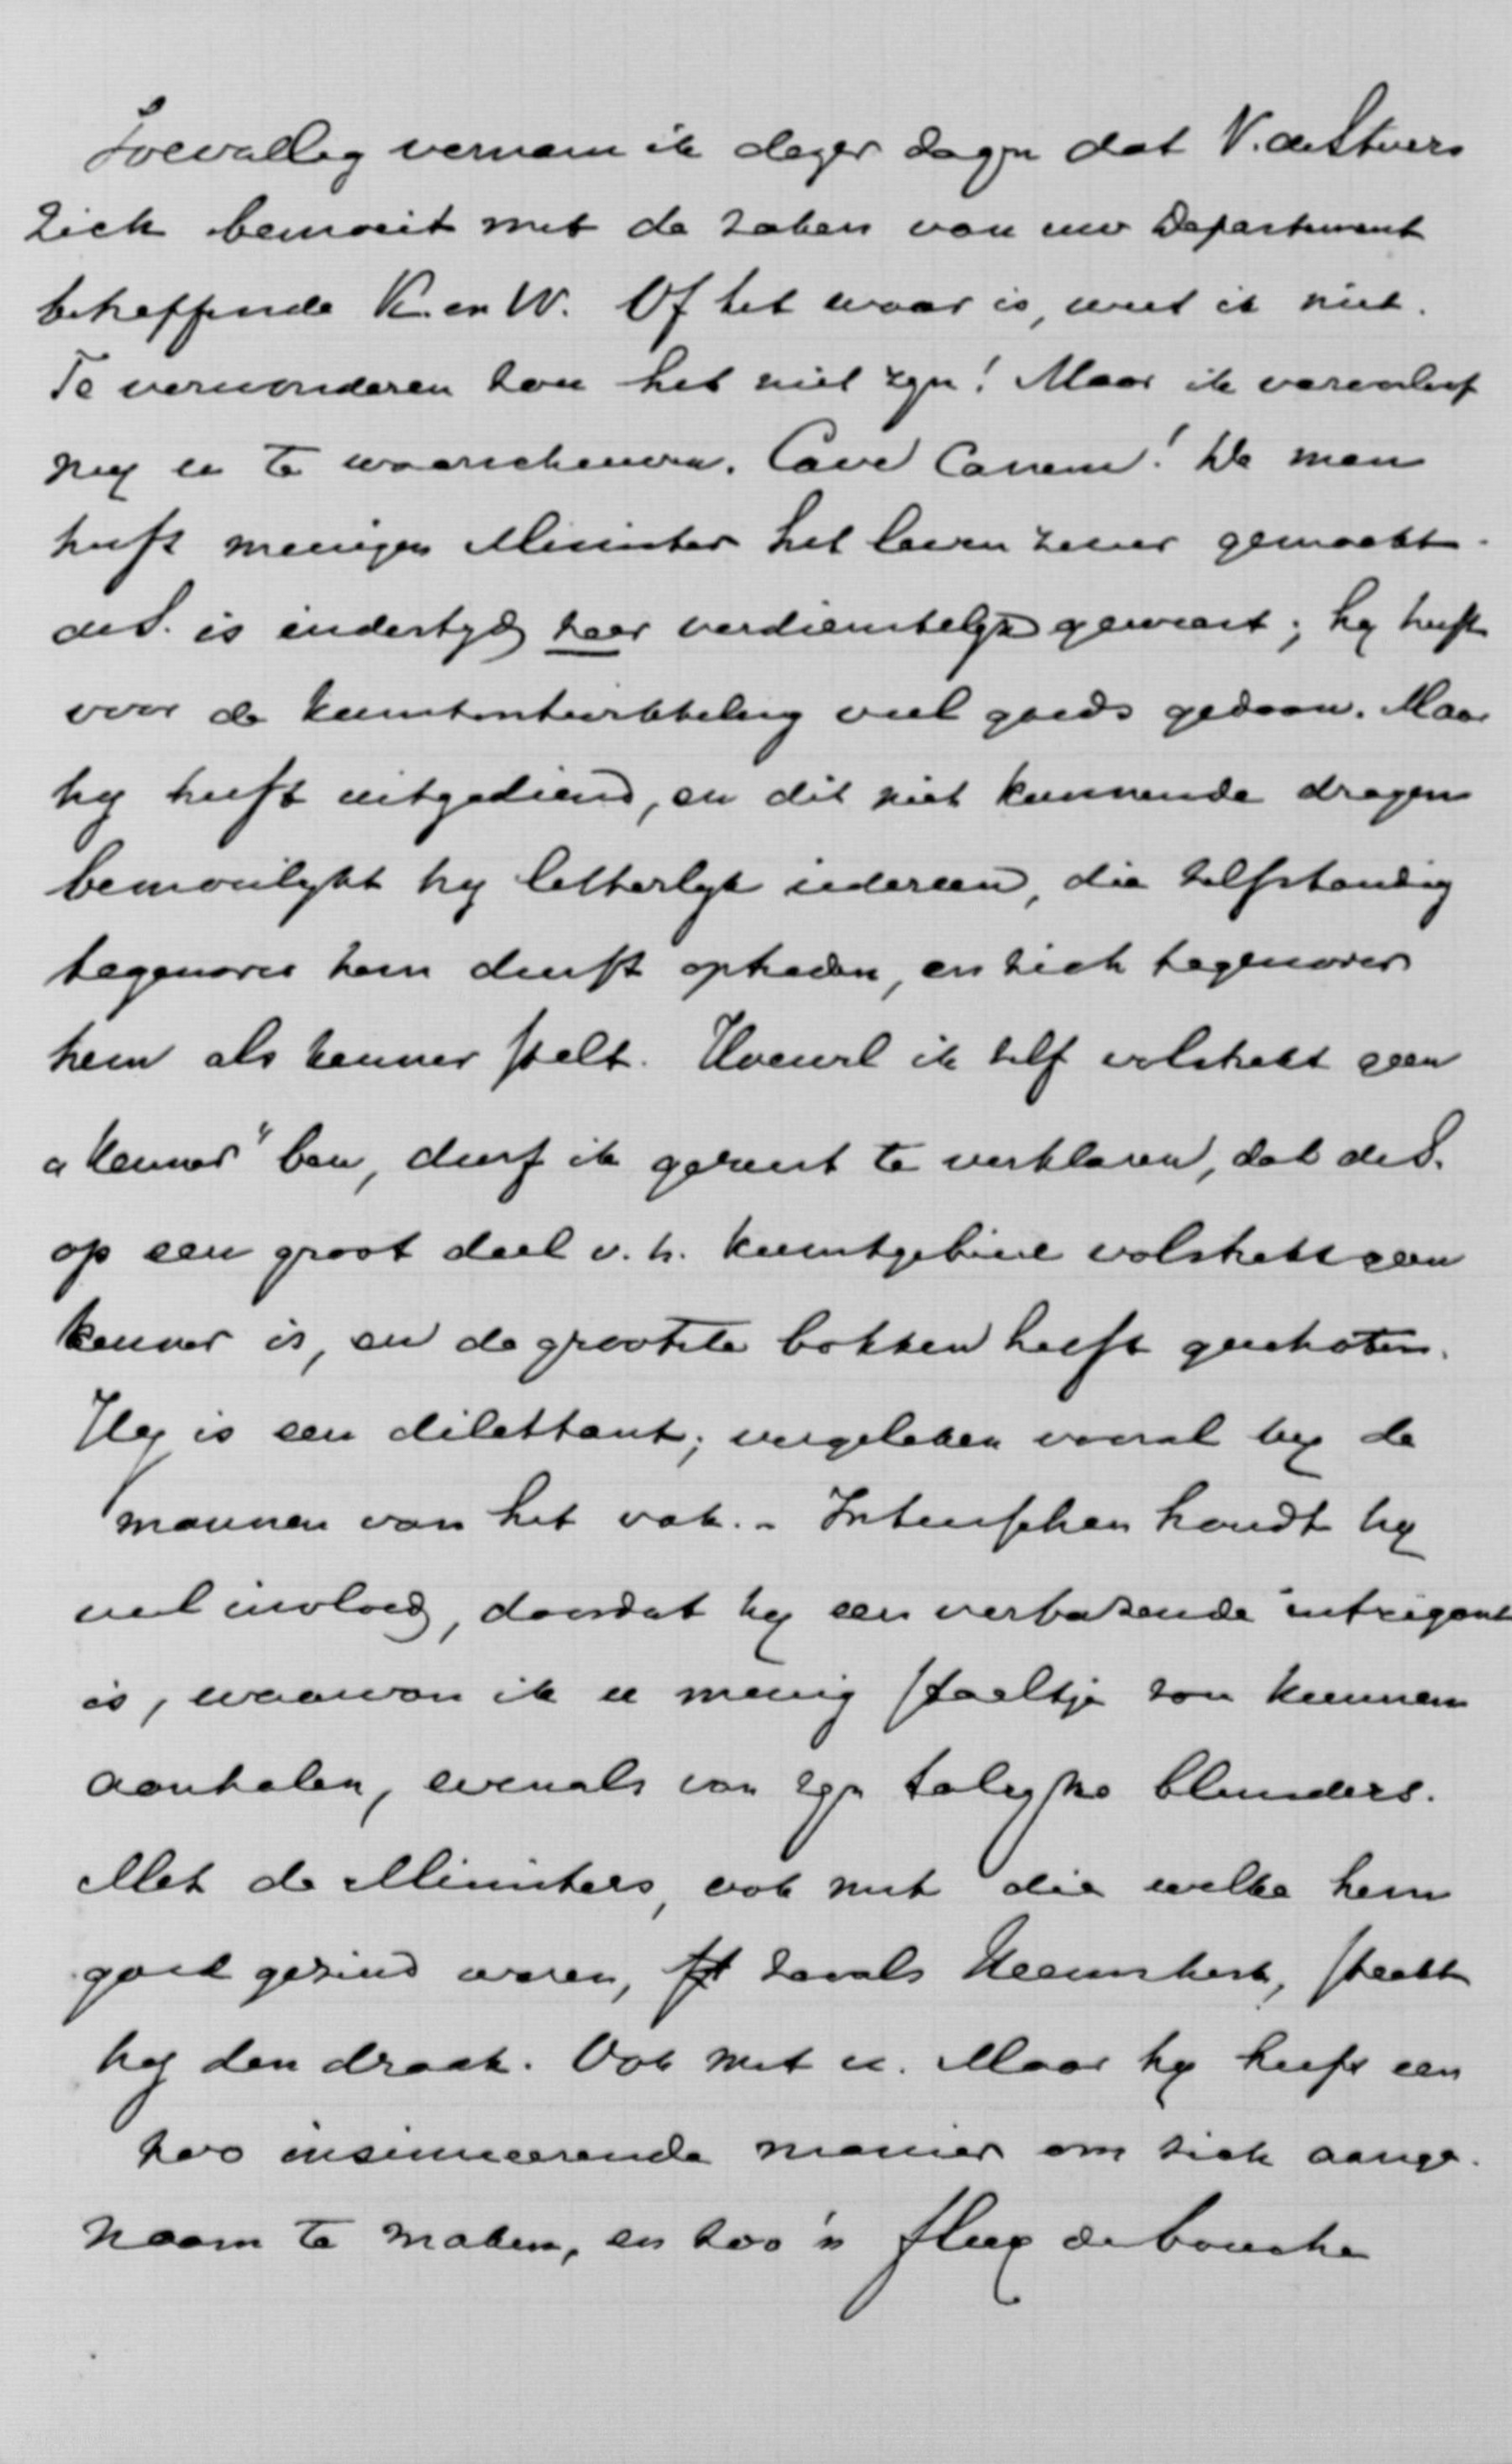 Toevallig vernam ik dezer dagen dat V. de Stuers
zich bemoeit met de zaken van uw Departement
betreffende K. en W. Of het waar is, weet ik niet.
Te verwonderen zou het niet zijn! Maar ik veroorloof
mij u te waarschuwen. Cave Canem! De man
heeft menigen Minister het leven zuur gemaakt.
de S. is indertijd zeer verdienstelijk geweest; hij heeft
voor de kunstontwikkeling veel goeds gedaan. Maar
hij heeft uitgediend, en dit niet kunnende dragen
bemoeilijkt hij letterlijk iedereen, die zelfstandig
tegenover hem durft optreden, en zich tegenover
hem als kenner stelt. Hoewel ik zelf volstrekt geen
„kenner" ben, durf ik gerust te verklaren, dat de S.
op een groot deel v. h. kunstgebied volstrekt geen
kenner is, en de grootste bokken heeft geschoten.
Hij is een dilettant; vergeleken vooral bij de
mannen van het vak. - Intusschen houdt hij
veel invloed, doordat hij een verbazende intrigant
is, waarvan ik u menig staaltje zou kunnen
aanhalen, evenals van zijn talrijke blunders.
Met de Ministers, ook met die welke hem
goed gezind waren, zooals Heemskerk, steekt
hij den draak. Ook met u. Maar hij heeft een
zoo insinueerende manier om zich aange-
naam te maken, en zoo'n flux de bouche